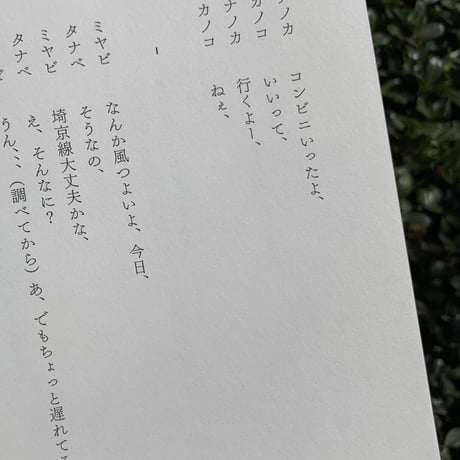 ノカ コンビニいったよ、
カノコ いいって、
ナノカ 行くよー、
カノコ ねぇ、
ミヤビ なんか風つよいよ、今日、
タナベ そうなの、
ミヤビ 埼京線大丈夫かな、
タナベ え、そんなに？
うん、、、（調べてから）あ、でもちょっと遅れて